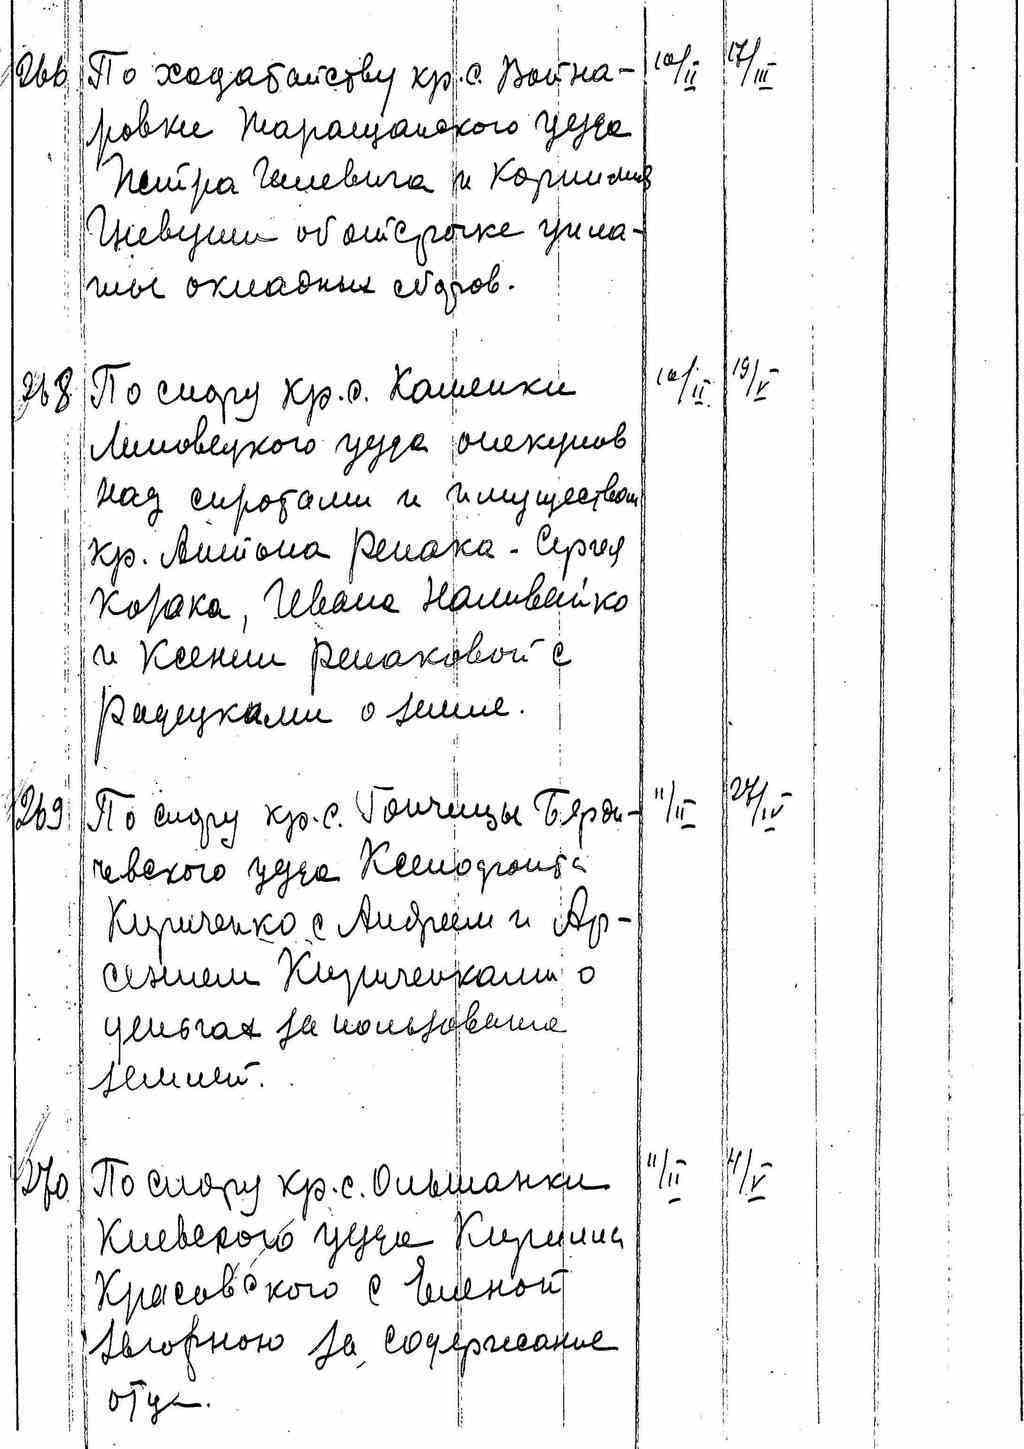 266 По ходатайству кр. с. Война- 10/II 17/III
ровки Таращанского уезда
Петра и Корнилия
об отсрочке упла-
ты окладных сборов.
268 По спору кр. с. Кашенки 10/II 19/V
Липовецкого уезда опекунов
над сиротами и имуществом
кр. Антона Репака - Сергея
Корака, Ивана Наливайко
и Ксении Репаковой с
Радецками о земле.
269 По спору кр. с. Гопчицы Берди- 11/II 27/IV
чевского уезда Ксенофонта
Кириченко с Андреем и Ар-
сением Кириченками о
деньгах за пользование
землей.
270 По спору кр. с. Ольшанки 11/II 4/V
Киевского уезда Кирилла
Красовского с Еленой
Загорною за содержание
отца.